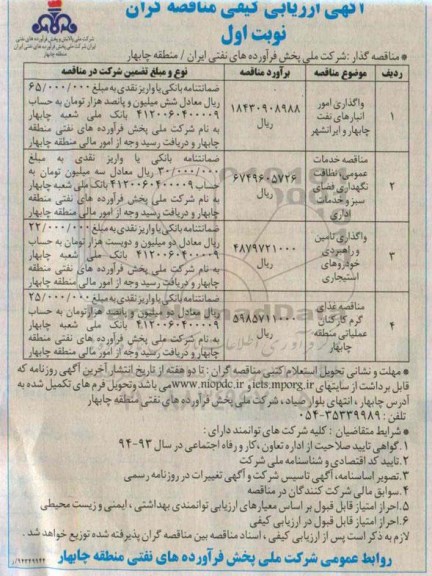 آگهی ارزیابی کیفی مناقصه گران
نوبت اول
شرکت ملی پالایش و پخش فرآورده های نفتی
ایران شرکت ملی پخش فرآورده های نفتی
منطقه چابهار
● مناقصه گذار : شرکت ملی پخش فرآورده های نفتی ایران / منطقه چابهار
ردیف موضوع مناقصه برآورد مناقصه نوع و مبلغ تضمین شرکت در مناقصه
۱ واگذاری امور انبارهای نفت چابهار و ایرانشهر ۱۸۴۳۰۹۰۸۹۸۸ ریال
ضمانتنامه بانکی یا واریز نقدی به مبلغ ۶۵/۰۰۰/۰۰۰
ریال معادل شش میلیون و پانصد هزار تومان به حساب
۴۱۲۰۰۶۰۴۰۰۰۰۹ بانک ملی شعبه چابهار
به نام شرکت ملی پخش فرآورده های نفتی منطقه
چابهار و دریافت رسید وجه از امور مالی منطقه چابهار
۲ مناقصه خدمات عمومی، نظافت نگهداری فضای سبز و خدمات اداری ۶۷۴۹۶۰۵۷۲۶ ریال
ضمانتنامه بانکی یا واریز نقدی به مبلغ
۳۰/۰۰۰/۰۰۰ ریال معادل سه میلیون تومان به
حساب ۴۱۲۰۰۶۰۴۰۰۰۰۹ بانک ملی شعبه چابهار
به نام شرکت ملی پخش فرآورده های نفتی منطقه
چابهار و دریافت رسید وجه از امور مالی منطقه چابهار
۳ واگذاری تامین و راهبردی خودروهای استیجاری ۴۸۷۹۷۲۱۰۰۰ ریال
ضمانتنامه بانکی یا واریز نقدی به مبلغ ۲۲/۰۰۰/۰۰۰
ریال معادل دو میلیون و دویست هزار تومان به حساب
۴۱۲۰۰۶۰۴۰۰۰۰۹ بانک ملی شعبه چابهار
به نام شرکت ملی پخش فرآورده های نفتی منطقه
چابهار و دریافت رسید وجه از امور مالی منطقه چابهار
۴ مناقصه غذای گرم کارکنان عملیاتی منطقه چابهار ۵۹۸۵۷۱۱۰۰۰ ریال
ضمانتنامه بانکی یا واریز نقدی به مبلغ ۲۵/۰۰۰/۰۰۰
ریال معادل دو میلیون و پانصد هزار تومان به حساب
۴۱۲۰۰۶۰۴۰۰۰۰۹ بانک ملی شعبه چابهار
به نام شرکت ملی پخش فرآورده های نفتی منطقه
چابهار و دریافت رسید وجه از امور مالی منطقه چابهار
● مهلت و نشانی تحویل استعلام کتبی مناقصه گران : تا دو هفته از تاریخ انتشار آخرین آگهی روزنامه که
قابل برداشت از سایتهای iets.mporg.ir و www.niopdc.ir می باشد وتحویل فرم های تکمیل شده به
آدرس چابهار ، انتهای بلوار صیاد ، شرکت ملی پخش فرآورده های نفتی منطقه چابهار
تلفن : ۳۵۳۳۹۹۸۹-۰۵۴
● شرایط متقاضیان : کلیه شرکت های توانمند دارای :
۱.گواهی تایید صلاحیت از اداره تعاون ،کار و رفاه اجتماعی در سال ۹۳-۹۴
۲.تایید کد اقتصادی و شناسنامه ملی شرکت
۳.تصویر اساسنامه، آگهی تاسیس شرکت و آگهی تغییرات در روزنامه رسمی
۴.سوابق مالی شرکت کنندگان در مناقصه
۵.احراز امتیاز قابل قبول بر اساس معیارهای ارزیابی توانمندی بهداشتی ، ایمنی و زیست محیطی
۶.احراز امتیاز قابل قبول در ارزیابی کیفی
لازم به ذکر است پس از ارزیابی کیفی ، اسناد مناقصه بین مناقصه گران پذیرفته شده توزیع خواهد شد .
روابط عمومی شرکت ملی پخش فرآورده های نفتی منطقه چابهار